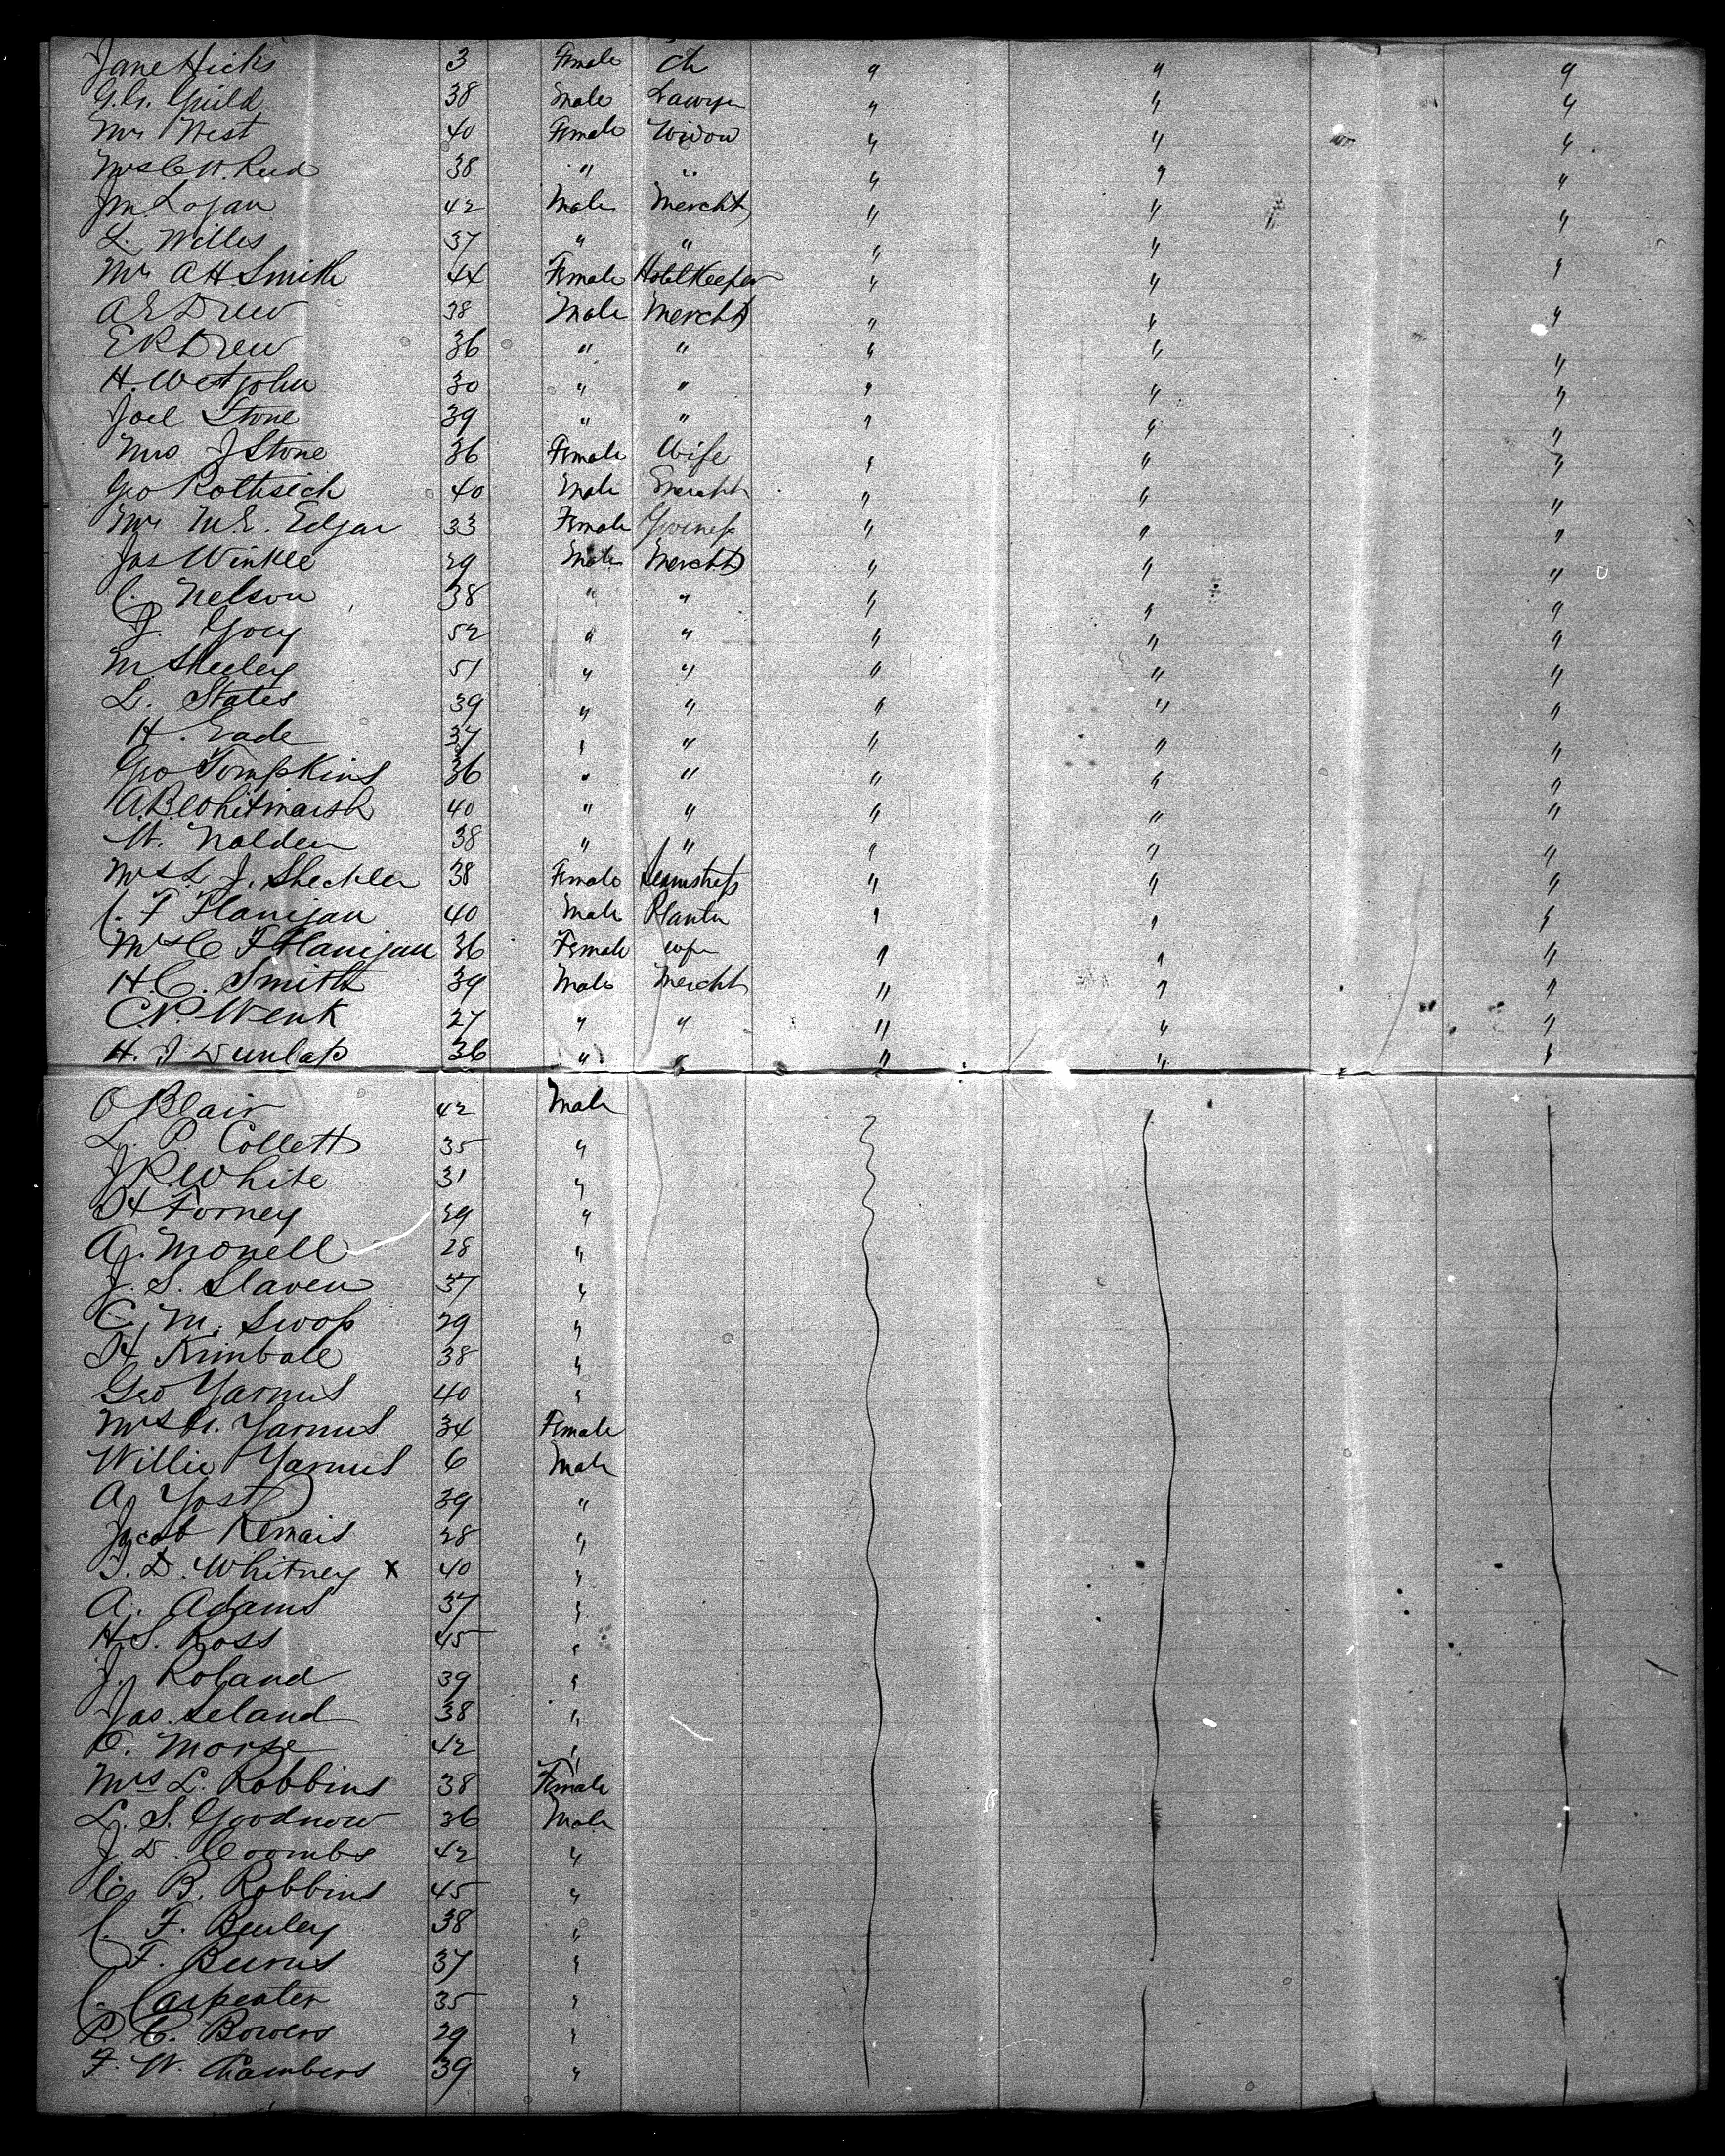 Jane Hicks 3 Female ch " " "
G.G. Guild 38 Male Lawyer " " "
Mrs West 40 Female Widow " " "
Mrs C H. Reed 38 " " " " "
Jn. Logan 42 Male Mercht " " "
L. Willis 37 " " " " "
Mrs A H Smith 44 Female Hotel Keeper " " "
A E Drew 38 Male Mercht " " "
E R Drew 36 " " " " "
H. Westjohn 30 " " " " "
Joel Stone 39 " " " " "
Mrs J Stone 36 Female Wife " " "
Geo Rothsich 40 Male Mercht " " "
Mrs M.E. Edgar 33 Female Governess " " "
Jas Winkle 29 Male Mercht " " "
C. Nelson 38 " " " " "
J. Goey 52 " " " " "
M Sheeley 51 " " " " "
L. States 39 " " " " "
H. Eade 37 " " " " "
Geo Tompkins 36 " " " " "
A.B. Whitmarsh 40 " " " " "
W. Nalden 38 " " " " "
Mrs L. J. Sheckler 38 Female Seamstress " " "
C. F Flanijan 40 Male Planter " " "
Mrs C F Flanijan 36 Female wife " " "
H.C. Smith 39 Male Mercht " " "
C.P. Wenk 27 " " " " "
H. J Dunlap 36 " " " " "
O Blair 42 Male
L. P. Collett 35 "
J R. White 31 "
H Forney 29 "
A. Monell 28 "
J. S. Slaven 37 "
C. M. Swop 29 "
H Kimball 38 "
Geo Yarnus 40 "
Mrs G. Yarnus 34 Female
Willie Yarnus 6 Male
A Yost 39 "
Jacob Remais 28 "
J. D. Whitney x 40 "
A. Adams 37 "
H.S. Ross 45 "
J. Roland 39 "
Jas. Leland 38 "
C. Morse 42 "
Mrs L. Robbins 38 Female
L. S. Goodnow 36 Male
J. D. Coombs 42 "
C. B. Robbins 45 "
C. F. Beuley 38 "
F. Burns 37 "
C. Carpenter 35 "
P. C. Bowers 29 "
F. W. Chambers 39 "